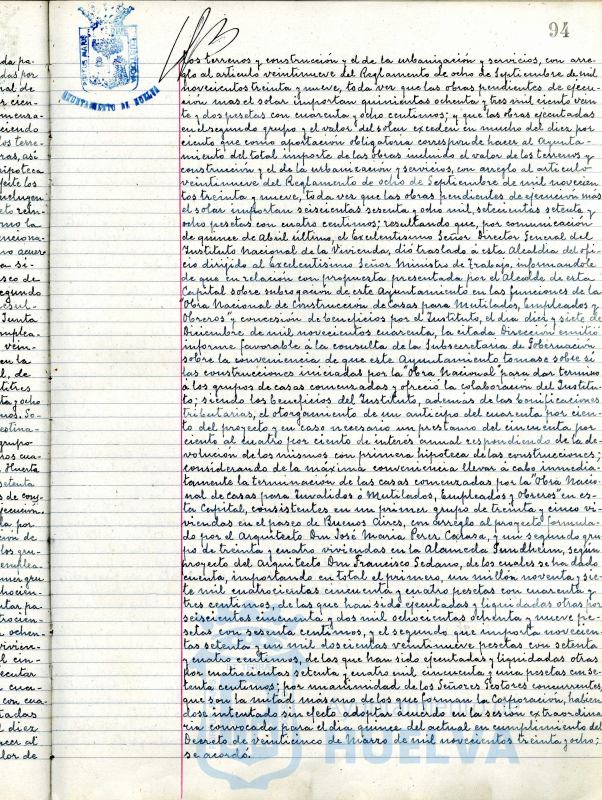 94
AYUNTAMIENTO DE HUELVA
los terrenos y construcción y el de la urbanización y servicios, con arre-
glo al artículo veintinueve del Reglamento de ocho de Septiembre de mil
novecientos treinta y nueve, toda vez que las obras pendientes de ejecu-
ción mas el solar importan quinientas ochenta y tres mil ciento vein-
te y dos pesetas con cuarenta y ocho centimos; y que las obras ejecutadas
en el segundo grupo y el valor del solar exceden en mucho del diez por
ciento que como aportación obligatoria corresponde hacer al Ayunta-
miento del total importe de las obras incluido el valor de los terrenos y
construcción y el de la urbanización y servicios, con arreglo al artículo
veintinueve del Reglamento de ocho de Septiembre de mil novecien-
tos treinta y nueve, toda vez que las obras pendientes de ejecución mas
el solar importan seiscientas sesenta y ocho mil, setecientas setenta y
ocho pesetas con cuatro centimos; resultando que, por comunicación
de quince de Abril último, el Excelentísimo Señor Director General del
Instituto Nacional de la Vivienda, dió traslado á esta Alcaldia del ofi-
cio dirijido al Excelentísimo Señor Ministro de Trabajo, informandole
de que en relación con propuesta presentada por el Alcalde de esta
Capital sobre subrogación de este Ayuntamiento en las funciones de la
"Obra Nacional de Construcción de casas para Mutilados, Empleados y
Obreros" y concesión de beneficios por el Instituto, el dia diez y siete de
Diciembre de mil novecientos cuarenta, la citada Dirección emitió
informe favorable á la consulta de la Subsecretaria de Gobernación
sobre la conveniencia de que este Ayuntamiento tomase sobre si
las construcciones iniciadas por la "Obra Nacional" para dar termino
á los grupos de casas comenzadas y ofreció la colaboración del Institu-
to; siendo los beneficios del Instituto, además de las bonificaciones
tributarias, el otorgamiento de un anticipo del cuarenta por cien-
to del proyecto y en caso necesario un prestamo del cincuenta por
ciento al cuatro por ciento de interés anual respondiendo de la de-
volución de los mismos con primera hipoteca de las construcciones;
considerando de la máxima conveniencia llevar á cabo inmedia-
tamente la terminación de las casas comenzadas por la "Obra Nacio-
nal de casas para Invalidos ó Mutilados, Empleados y Obreros" en es-
ta Capital, consistentes en un primer grupo de treinta y cinco vi-
viendas en el paseo de Buenos Aires, con arreglo al proyecto formula-
do por el Arquitecto Don José Maria Perez Carasa, y un segundo gru-
po de treinta y cuatro viviendas en la Alameda Sundheim, según
proyecto del Arquitecto Don Francisco Sedano, de los cuales se ha dado
cuenta, importando en total el primero, un millón noventa y sie-
te mil cuatrocientas cincuenta y cuatro pesetas con cuarenta y
tres centimos, de las que han sido ejecutadas y liquidadas otras por
seiscientas cincuenta y dos mil ochocientas ochenta y nueve pe-
setas con sesenta centimos, y el segundo que importa novecien-
tas setenta y un mil doscientas veintinueve pesetas con setenta
y cuatro centimos, de las que han sido ejecutadas y liquidadas otras
por cuatrocientas setenta y cuatro mil cincuenta y una pesetas con se-
tenta centimos; por unanimidad de los Señores Gestores concurrentes,
que son la mitad más uno de los que forman la Corporación, habien-
dose intentado sin efecto adoptar acuerdo en la sesión extraordina-
ria convocada para el dia quince del actual en cumplimiento del
Decreto de veinticinco de Marzo de mil novecientos treinta y ocho;
se acordó.
HUELVA